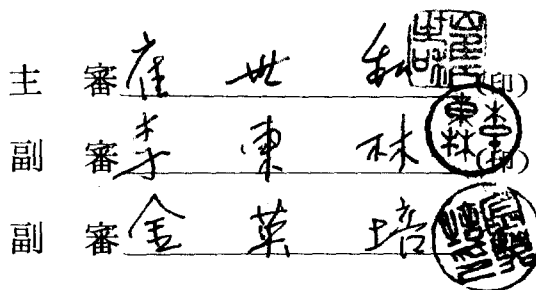 主 審 崔 世 和 (印)
副 審 李 東 林 (印)
副 審 金 英 培